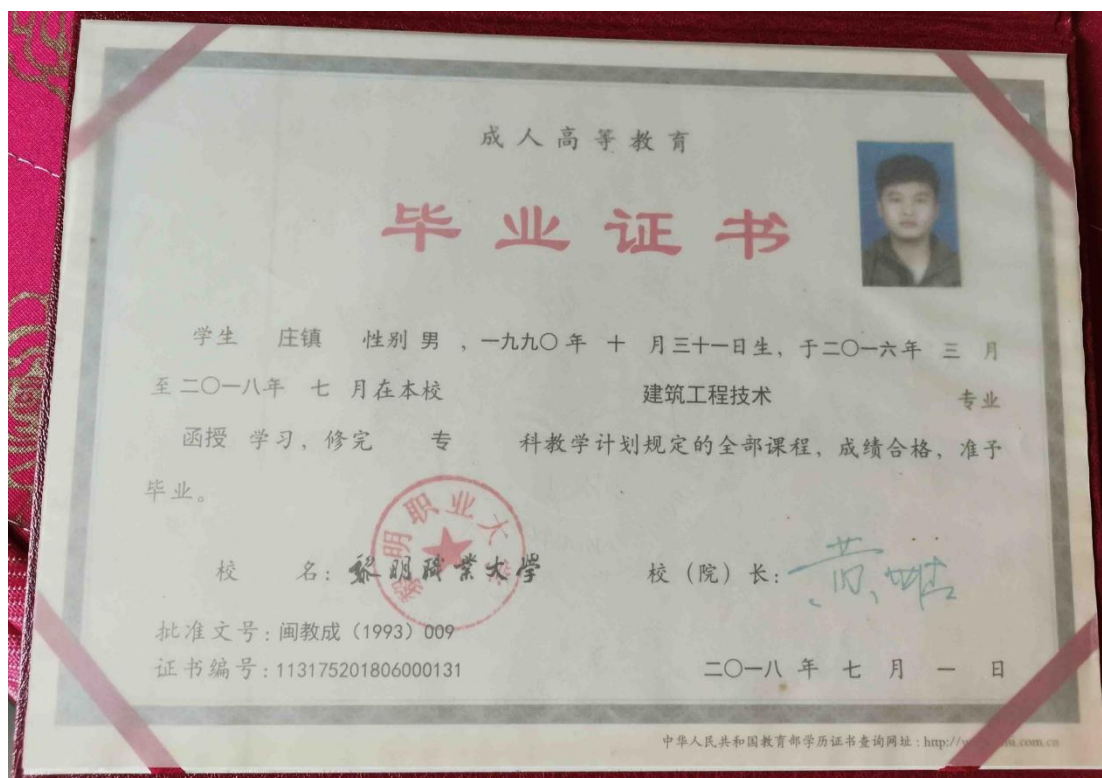 成人高等教育
毕业证书
学生 庄镇 性别 男 ，一九九〇 年 十 月三十一日生，于二〇一六年 三 月
至 二〇一八年 七 月在本校 建筑工程技术 专业
函授 学习，修完 专 科教学计划规定的全部课程，成绩合格，准予
毕业。
黎明职业大学
校 名：黎明職業大學 校（院）长：
批准文号：闽教成（1993）009
证书编号：113175201806000131 二〇一八 年 七 月 一 日
中华人民共和国教育部学历证书查询网址：http://